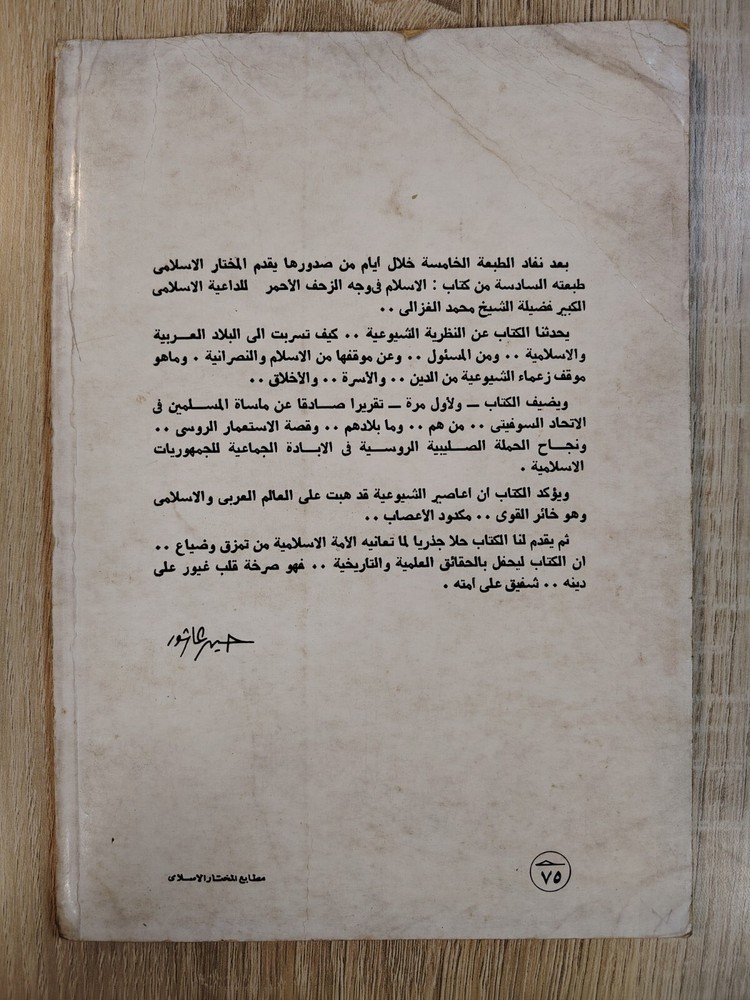 بعد نفاد الطبعة الخامسة خلال أيام من صدورها يقدم المختار الاسلامى
طبعته السادسة من كتاب : الاسلام فى وجه الزحف الأحمر للداعية الاسلامى
الكبير فضيلة الشيخ محمد الغزالى ..
يحدثنا الكتاب عن النظرية الشيوعية .. كيف تسربت الى البلاد العربية
والاسلامية .. ومن المسئول .. وعن موقفها من الاسلام والنصرانية . وماهو
موقف زعماء الشيوعية من الدين .. والأسرة .. والأخلاق ..
ويضيف الكتاب ــ ولأول مرة ــ تقريرا صادقا عن مأساة المسلمين فى
الاتحاد السوفيتى .. من هم .. وما بلادهم .. وقصة الاستعمار الروسى ..
ونجاح الحملة الصليبية الروسية فى الابادة الجماعية للجمهوريات
الاسلامية .
ويؤكد الكتاب ان أعاصير الشيوعية قد هبت على العالم العربى والاسلامى
وهو خائر القوى .. مكدود الأعصاب ..
ثم يقدم لنا الكتاب حلا جذريا لما تعانيه الأمة الاسلامية من تمزق وضياع ..
ان الكتاب ليحفل بالحقائق العلمية والتاريخية .. فهو صرخة قلب غيور على
دينه .. شفيق على أمته .
حسين عاشور
مطابع المختار الاسلامى
٧٥